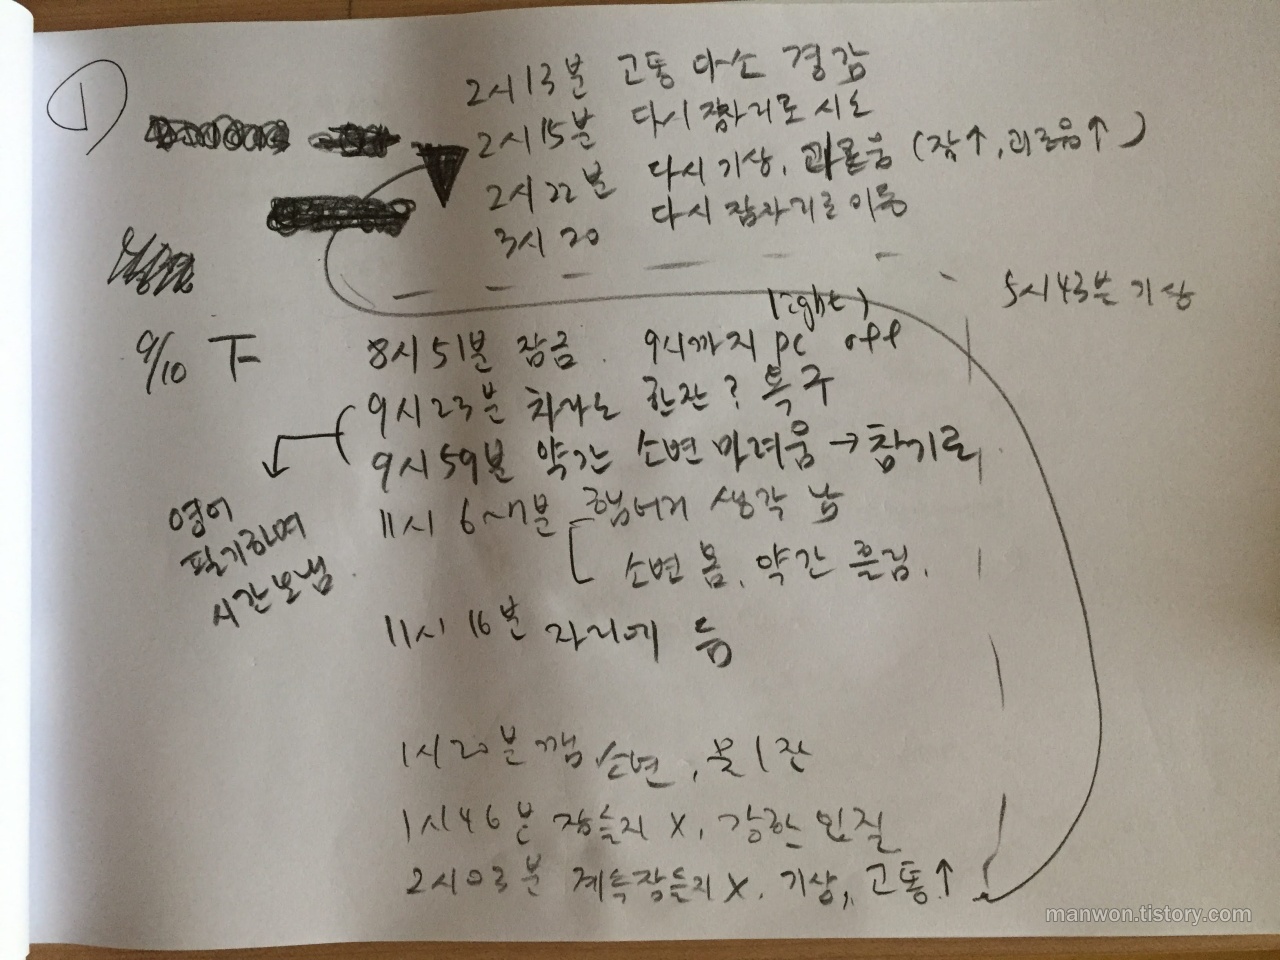 ①
2시 13분 고통 다소 경감
2시 15분 다시 잠자리로 시도
2시 22분 다시 기상, 괴로움 (잠↑, 괴로움↑)
3시 20 다시 잠자리로 이동
5시 43분 기상
9/10 下
8시 51분 잠금. 9시까지 pc off
(light)
9시 23분 치카노 한잔? 욕구
9시 59분 약간 소변 마려움 → 참기로
영어
필기하며
시간 보냄.
11시 6~7분 햄버거 생각 남
소변 봄, 약간 흘림.
11시 16분 자리에 듬
1시 20분 깸 소변, 물 1잔
1시 46분 잠들지 X, 강한
2시 03분 계속 잠들지 X. 기상, 고통↑
manwon.tistory.com